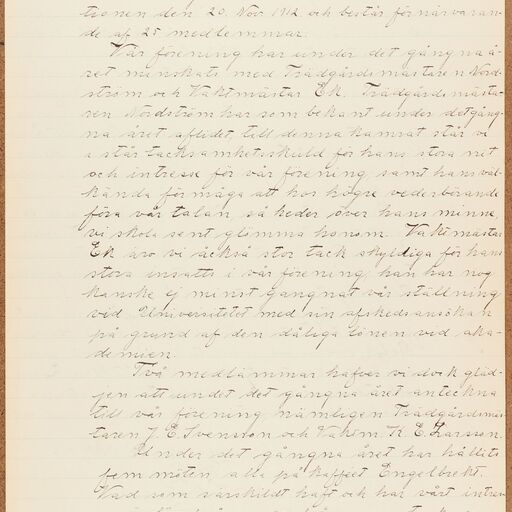 tionen den 20. Nov. 1912. och består för närvaran-
de af 25 medlemmar.
Vår förening har under det gångna å-
ret minskats med Trädgårdsmästaren Nord-
ström och Vaktmästar Ek. Trädgårdsmästa-
ren Nordström har som bekant under det gång-
na året aflidet till denna kamrat står vi
i står tacksamhetsskuld för hans stora nit
och intresse för vår förening, samt hans väl-
kända förmåga att hos högre vederbörande
föra vår talan, så heder över hans minne,
vi skola sent glömma honom. Vaktmästar
Ek äro vi åckså stor tack skyldiga för hans
stora insatts i vår förening, han har nog
kanske ej minst gangnat vår ställning
vid Universitetet med sin afskedsansökan
på grund af den dåliga lönen vid aka-
demien.
Två medlämmar hafver vi dock gläd-
jen att undet det gångna året anteckna
till vår förening nämligen Trädgårdsmäs-
taren J. E. Svensson och Vaktm. K. E. Larsson.
Under det gångna året har hållits
fem möten alla på kafféet Engelbrekt.
Vad som särskildt haft och har vårt intres-